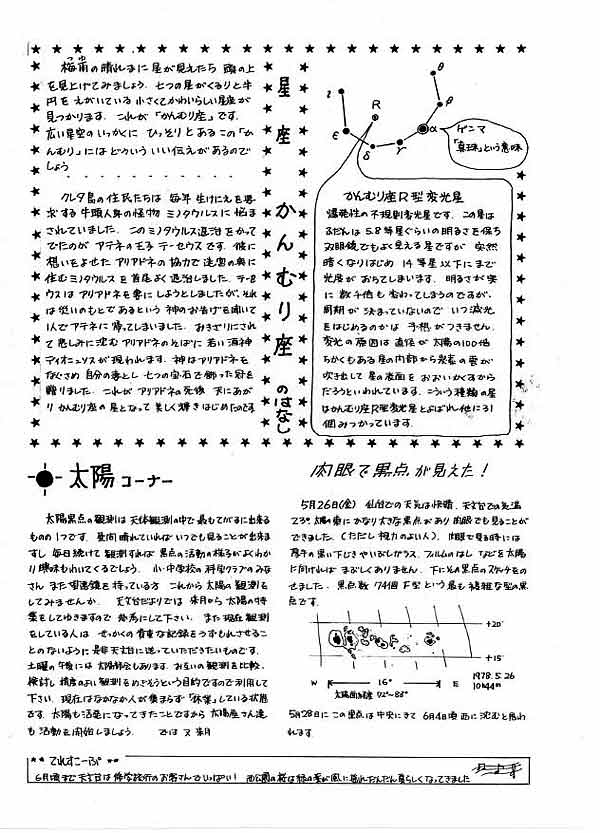 梅雨の晴れまに星が見えたら 頭の上
つゆ
を見上げてみましょう. 七つの星がくるりと半
円を えがいている 小さくてかわいらしい星座が
見つかります. これが「かんむり座」です.
広い星空のいっかくに ひっそりとあるこの「か
んむり」にはどういう いい伝えがあるので
しょう
クレタ島の住民たちは 毎年 生けにえを要
求する 牛頭人身の怪物 ミノタウルスに悩ま
されていました. このミノタウルス退治をかって
でたのが アテネの王子 テーセウスです. 彼に
想いをよせた アリアドネの協力で 迷宮の奥に
住むミノタウルスを 首尾よく退治しました. テーセ
ウスは アリアドネを妻にしようとしましたが,それ
は災いのもとであるという 神のお告げを聞いて
1人で アテネに 帰ってしまいました. おきざりにされ
て 悲しみに沈む アリアドネのそばに 若い酒神
ディオニュソスが現われます. 神はアリアドネを
なぐさめ 自分の妻とし 七つの宝石で飾った冠を
贈りました. これが アリアドネの死後 天にあが
り かんむり座の星となって 美しく輝きはじめたのです
星座 かんむり座 のはなし
ι
ε
R
δ
γ
α
β
θ
ゲンマ
「真珠」という意味
かんむり座R型変光星
爆発性の不規則変光星です. この星は
ふだんは 5.8等星ぐらいの明るさを保ち
双眼鏡でもよく見える星ですが 突然
暗くなりはじめ 14等星以下にまで
光度が おちてしまいます. 明るさが実
に 数千倍も 変わってしまうのですが,
周期が 決まっていないので いつ減光
をはじめるのかは 予想がつきません.
変光の原因は 直径が 太陽の100倍
ちかくもある 星の内部から炭素の雲が
吹き出して 星の表面を おおいかくすから
だろうといわれています. こういう種類の星
はかんむり座R型変光星とよばれ 他に31
個みつかっています.
太陽コーナー
太陽黒点の観測は 天体観測の中で 最もてがるに出来る
ものの1つです. 昼間晴れていれば いつでも見ることが出来ま
すし 毎日続けて観測すれば 黒点の活動の様子がよくわか
り興味もわいてくるでしょう. 小・中学校の科学クラブのみな
さん また望遠鏡を持っている方 これから太陽の観測を
してみませんか. 天文台だよりでは 来月から太陽の特
集をしてゆきますので 参考にして下さい. また現在観測
をしている人は せっかくの貴重な記録をうずもれさせるこ
とのないように 是非天文台に送っていただきたいものです.
土曜の午後には 太陽部会もあります. お互いの観測を比較.
検討し 精度のよい観測をめざそうという目的ですので利用して
下さい. 現在はなかなか人が集まらず「休業」している状態
です. 太陽も活発になってきたことですから 太陽屋さん達
も活動を開始しましょう. では 又 来月
肉眼で黒点が見えた!
5月26日(金) 仙台での天気は快晴. 天文台での観測
でも 太陽の東にかなり大きな黒点があり 肉眼でも見ることが
できました. (ただし 視力のよい人). 肉眼で見る時には
厚手の黒い下じきや いぶしガラス. フィルムのはし などを太陽
に向ければ まぶしくありません. 下にその黒点のスケッチをの
せました. 黒点数74個 F型という最も複雑な型の黒
点です.
+20°
+15°
W
16°
E
太陽面経度 72°~88°
1978.5.26
10h44m
5月28日にこの黒点は 中央にきて 6月4日頃西に沈むと思わ
れます
** てれすこーぷ **
6月頃まで 天文台は 修学旅行のお客さんでいっぱい! 西公園の桜は緑の葉が風に揺れだんだん夏らしくなってきました